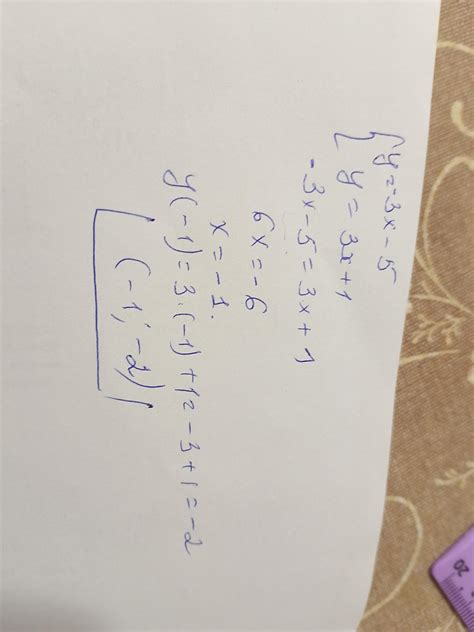 { y = -3x - 5
y = 3x + 1
-3x - 5 = 3x + 1
6x = -6
x = -1.
y(-1) = 3·(-1) + 1 = -3 + 1 = -2
(-1; -2)
20